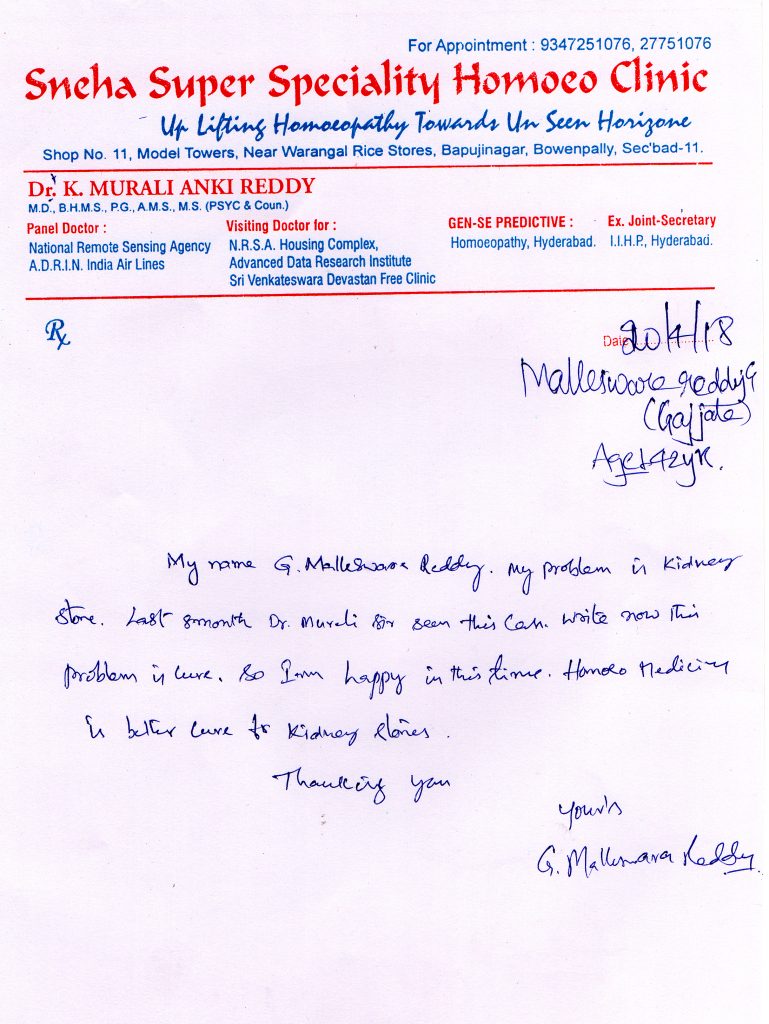 For Appointment : 9347251076, 27751076
Sneha Super Speciality Homoeo Clinic
Up Lifting Homoeopathy Towards Un Seen Horizone
Shop No. 11, Model Towers, Near Warangal Rice Stores, Bapujinagar, Bowenpally, Sec'bad-11.
Dr. K. MURALI ANKI REDDY
M.D., B.H.M.S., P.G., A.M.S., M.S. (PSYC & Coun.)
Panel Doctor :
National Remote Sensing Agency
A.D.R.I.N. India Air Lines
Visiting Doctor for :
N.R.S.A. Housing Complex,
Advanced Data Research Institute
Sri Venkateswara Devastan Free Clinic
GEN-SE PREDICTIVE :
Homoeopathy, Hyderabad.
Ex. Joint-Secretary
I.I.H.P., Hyderabad.
Rx
Date 20/4/18
Malleswara reddy G
(Gajjala)
Age 42yr.
My name G. Malleswara Reddy. my problem is Kidney
Stone. Last 8month Dr. Murali Sir seen this Case. write now this
problem is cure. So I am happy in this time. Homoeo Medicine
is better cure for Kidney stones.
Thanking you
your's
G. Malleswara Reddy.